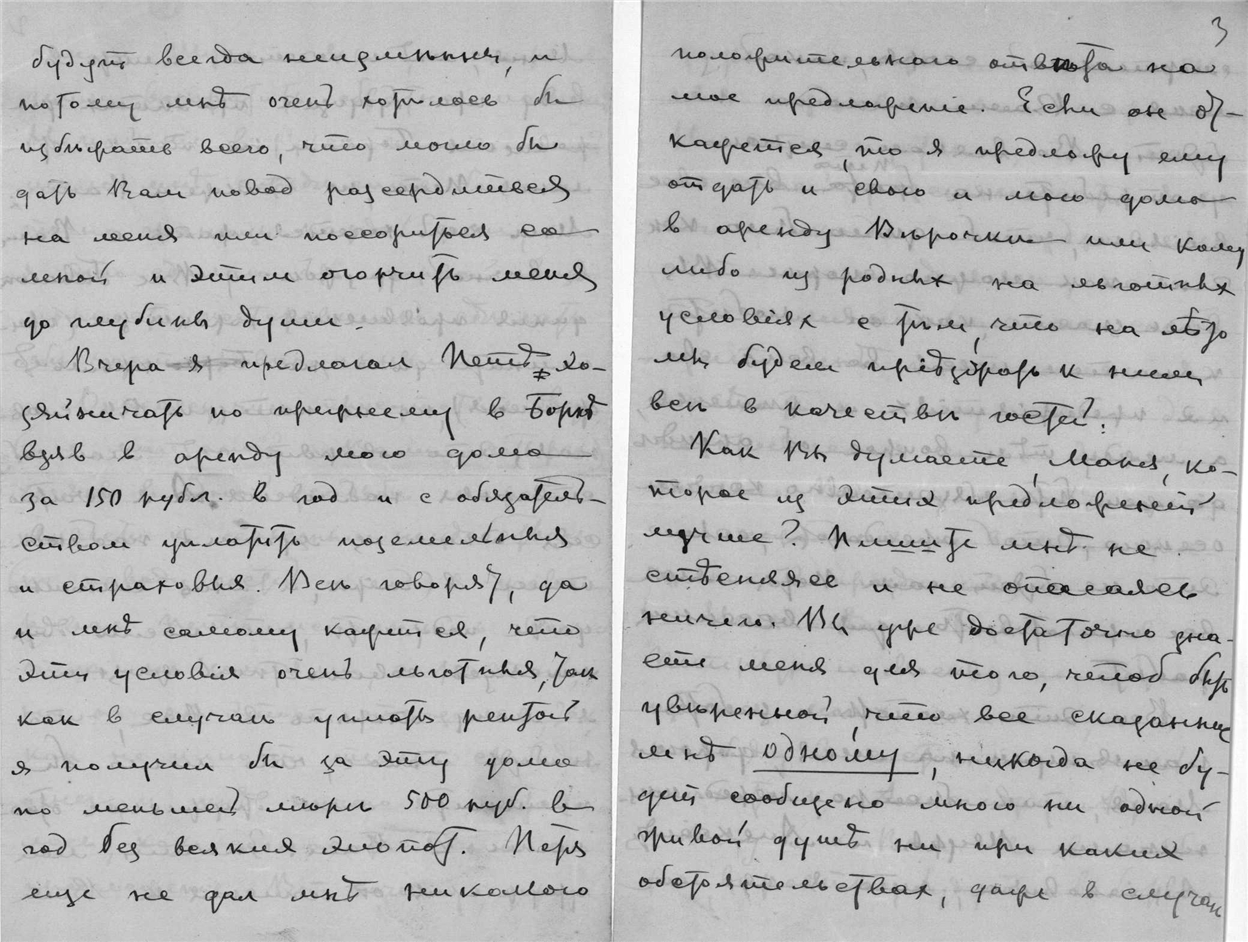 будут всегда неизменны, и
потому мнѣ очень хотелось бы
избѣгать всего, что могло бы
дать Вам повод разсердиться
на меня или поссориться со
мной и этим огончить меня
до глубины души.
Вчера я предлагал Петѣ хо-
зяйничать по прежнему в Боркѣ
взяв в аренду мого дома
за 150 рубл. в год и с обязатель-
ством уплатить поземельныя
и страховыя. Все говорят, да
и мнѣ самому кажется, что
эти условія очень льготныя, так
как в случаѣ уплаты рентой
я получил бы за эту дома
по меньшей мѣрѣ 500 руб. в
год без всяких хлопот. Петя
еще не дал мнѣ никакого
3
положительнаго отвѣта на
мое предложеніе. Если он от-
кажется, то я предложу ему
отдать и свою и мою дома
в аренду Вѣрочкѣ или кому
либо из родных на льготных
условіях с тѣм, что на лѣто
мы будем пріѣзжать к ним
всѣ в качествѣ гостей?
Как Вы думаете, Маня, ко-
торое из этих предложеній
лучше? Пишите мнѣ не
стѣсняясь и не опасаясь
ничего. Вы уже достаточно зна-
ете меня для того, чтоб быть
увѣренной, что все сказанное
мнѣ одному, никогда не бу-
дет сообщено мною ни одной
живой душѣ ни при каких
обстоятельствах, даже в случаѣ